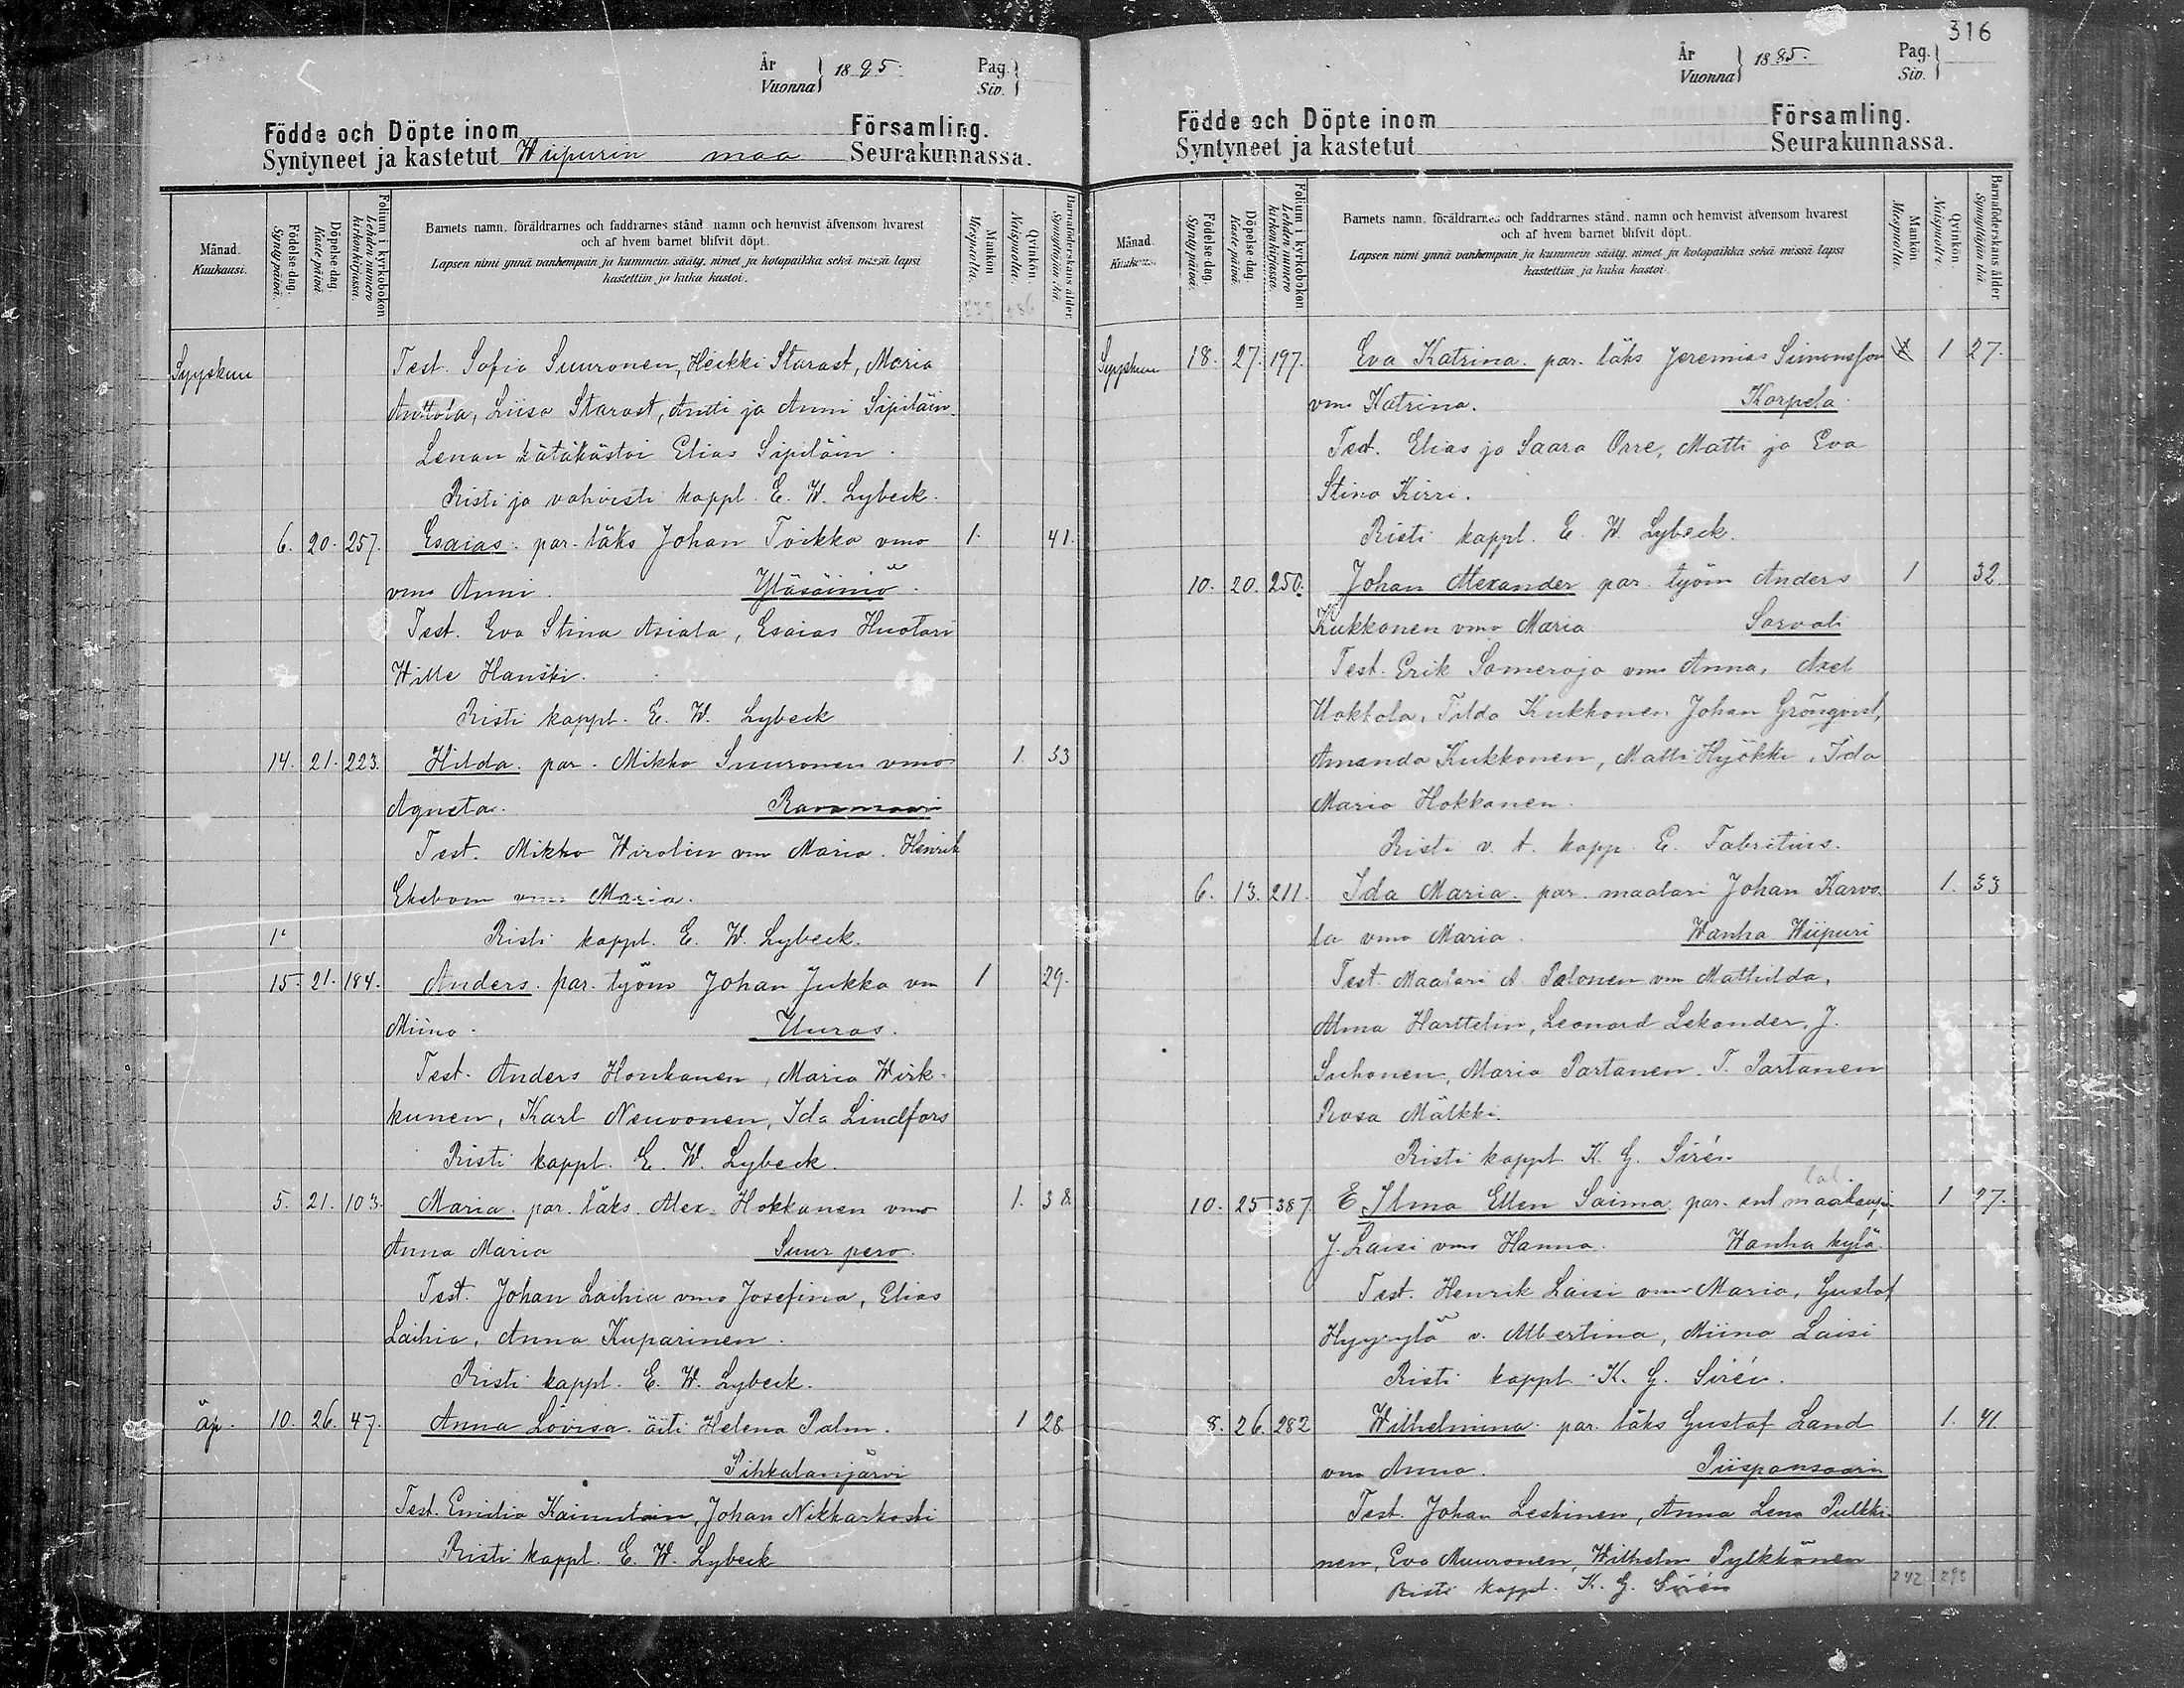 År
Vuonna
1885.
Pag.
Siv.
Födde och Döpte inom Församling.
Syntyneet ja kastetut Wiipurin maa Seurakunnassa.
Månad. Kuukausi.
Födelse dag. Syntypäivä.
Döpelse dag. Kaste päivä.
Folium i kyrkoboken Lehden numero kirkonkirjassa.
Barnets namn, föräldrarnes och faddrarnes stånd, namn och hemvist äfvensom hvarest
och af hvem barnet blifvit döpt.
Lapsen nimi ynnä vanhempain ja kummein sääty, nimet ja kotopaikka sekä missä lapsi
kastettiin ja kuka kastoi.
Mankön Miespuolta.
Qvinkön. Naispuolta.
Barnaföderskans ålder. Synnyttäjän ikä.
Syyskuu Test. Sofia Suuronen, Heikki Starast, Maria
Anttola, Liisa Starast, Antti ja Anni Sipiläin
Lenan hätäkastoi Elias Sipiläin.
Risti ja vahvisti kappl. E. W. Lybeck.
6. 20. 257. Esaias. par. läks Johan Toikka vmo 1. 41.
vmo Anni. Yläsäiniö.
Test. Eva Stina Asiala, Esaias Huotari
Wille Hanski.
Risti kappl. E. W. Lybeck
14. 21. 223. Hilda. par. Mikko Suuronen vmo 1. 33
Agneta. Ravansaari
Test. Mikko Wirolin vm Maria. Henrik
Ekebom vmo Maria.
Risti kappl. E. W. Lybeck.
15. 21. 184. Anders. par. työm Johan Jukka vm 1 29.
Miina. Uuras.
Test. Anders Honkanen, Maria Wirk-
kunen, Karl Neuvonen, Ida Lindfors
Risti kappl. E. W. Lybeck.
5. 21. 103. Maria. par. läks. Alex. Hokkanen vmo 1. 38.
Anna Maria Suur pero.
Test. Johan Laihia vmo Josefina, Elias
Laihia, Anna Kuparinen.
Risti kappl. E. W. Lybeck.
äp. 10. 26. 47. Anna Lovisa. äiti Helena Palm. 1 28.
Pihkalanjärvi
Test. Emilia Kaimulain, Johan Nikkarkoski
Risti kappl. E. W. Lybeck
316
År
Vuonna
1885.
Pag.
Siv.
Födde och Döpte inom Församling.
Syntyneet ja kastetut Seurakunnassa.
Månad. Kuukausi.
Födelse dag. Syntypäivä.
Döpelse dag. Kaste päivä.
Folium i kyrkoboken Lehden numero kirkonkirjassa.
Barnets namn, föräldrarnes och faddrarnes stånd, namn och hemvist äfvensom hvarest
och af hvem barnet blifvit döpt.
Lapsen nimi ynnä vanhempain ja kummein sääty, nimet ja kotopaikka sekä missä lapsi
kastettiin ja kuka kastoi.
Mankön. Miespuolta.
Qvinkön. Naispuolta.
Barnaföderskans ålder. Synnyttäjän ikä.
Syyskuu 18. 27. 197. Eva Katrina. par. läks Jeremias Simonsson 1 27.
vmo Katrina. Korpela.
Test. Elias ja Saara Orre, Matti ja Eva
Stina Kirri.
Risti kappl. E. W. Lybeck.
10. 20. 250. Johan Alexander par. työm Anders 1 32.
Kukkonen vmo Maria Sorvali
Test. Erik Someroja vmo Anna, Axel
Uokkola, Tilda Kukkonen Johan Grönqvist,
Amanda Kukkonen, Matti Hyökki, Ida
Maria Hokkanen.
Risti v. t. kapp. E. Fabritius.
6. 13. 211. Ida Maria. par. maalari Johan Karvo- 1. 33
la vmo Maria. Wanha Wiipuri
Test. Maalari A. Palonen vm Mathilda,
Alma Harttelin, Leonard Lekander, J.
Suhonen, Maria Partanen. T. Partanen
Rosa Mälkki.
Risti kappl. K. G. Sirén
tal.
10. 25 387 E. Ilma Ellen Saima. par. ent maakaupi 1 27.
J. Laisi vmo Hanna. Wanha kylä.
Test. Henrik Laisi vmo Maria, Gustaf
Hyyrylä v. Albertina, Miina Laisi
Risti kappl. K. G. Sirén.
8. 26. 282 Wilhelmina. par. läks Gustaf Land 1. 41.
vmo Anna. Piispansaari
Test. Johan Leskinen, Anna Lena Pulkki-
nen, Eva Muuronen, Wilhelm Pylkkönen
Risti kappl. K. G. Sirén
242. 295